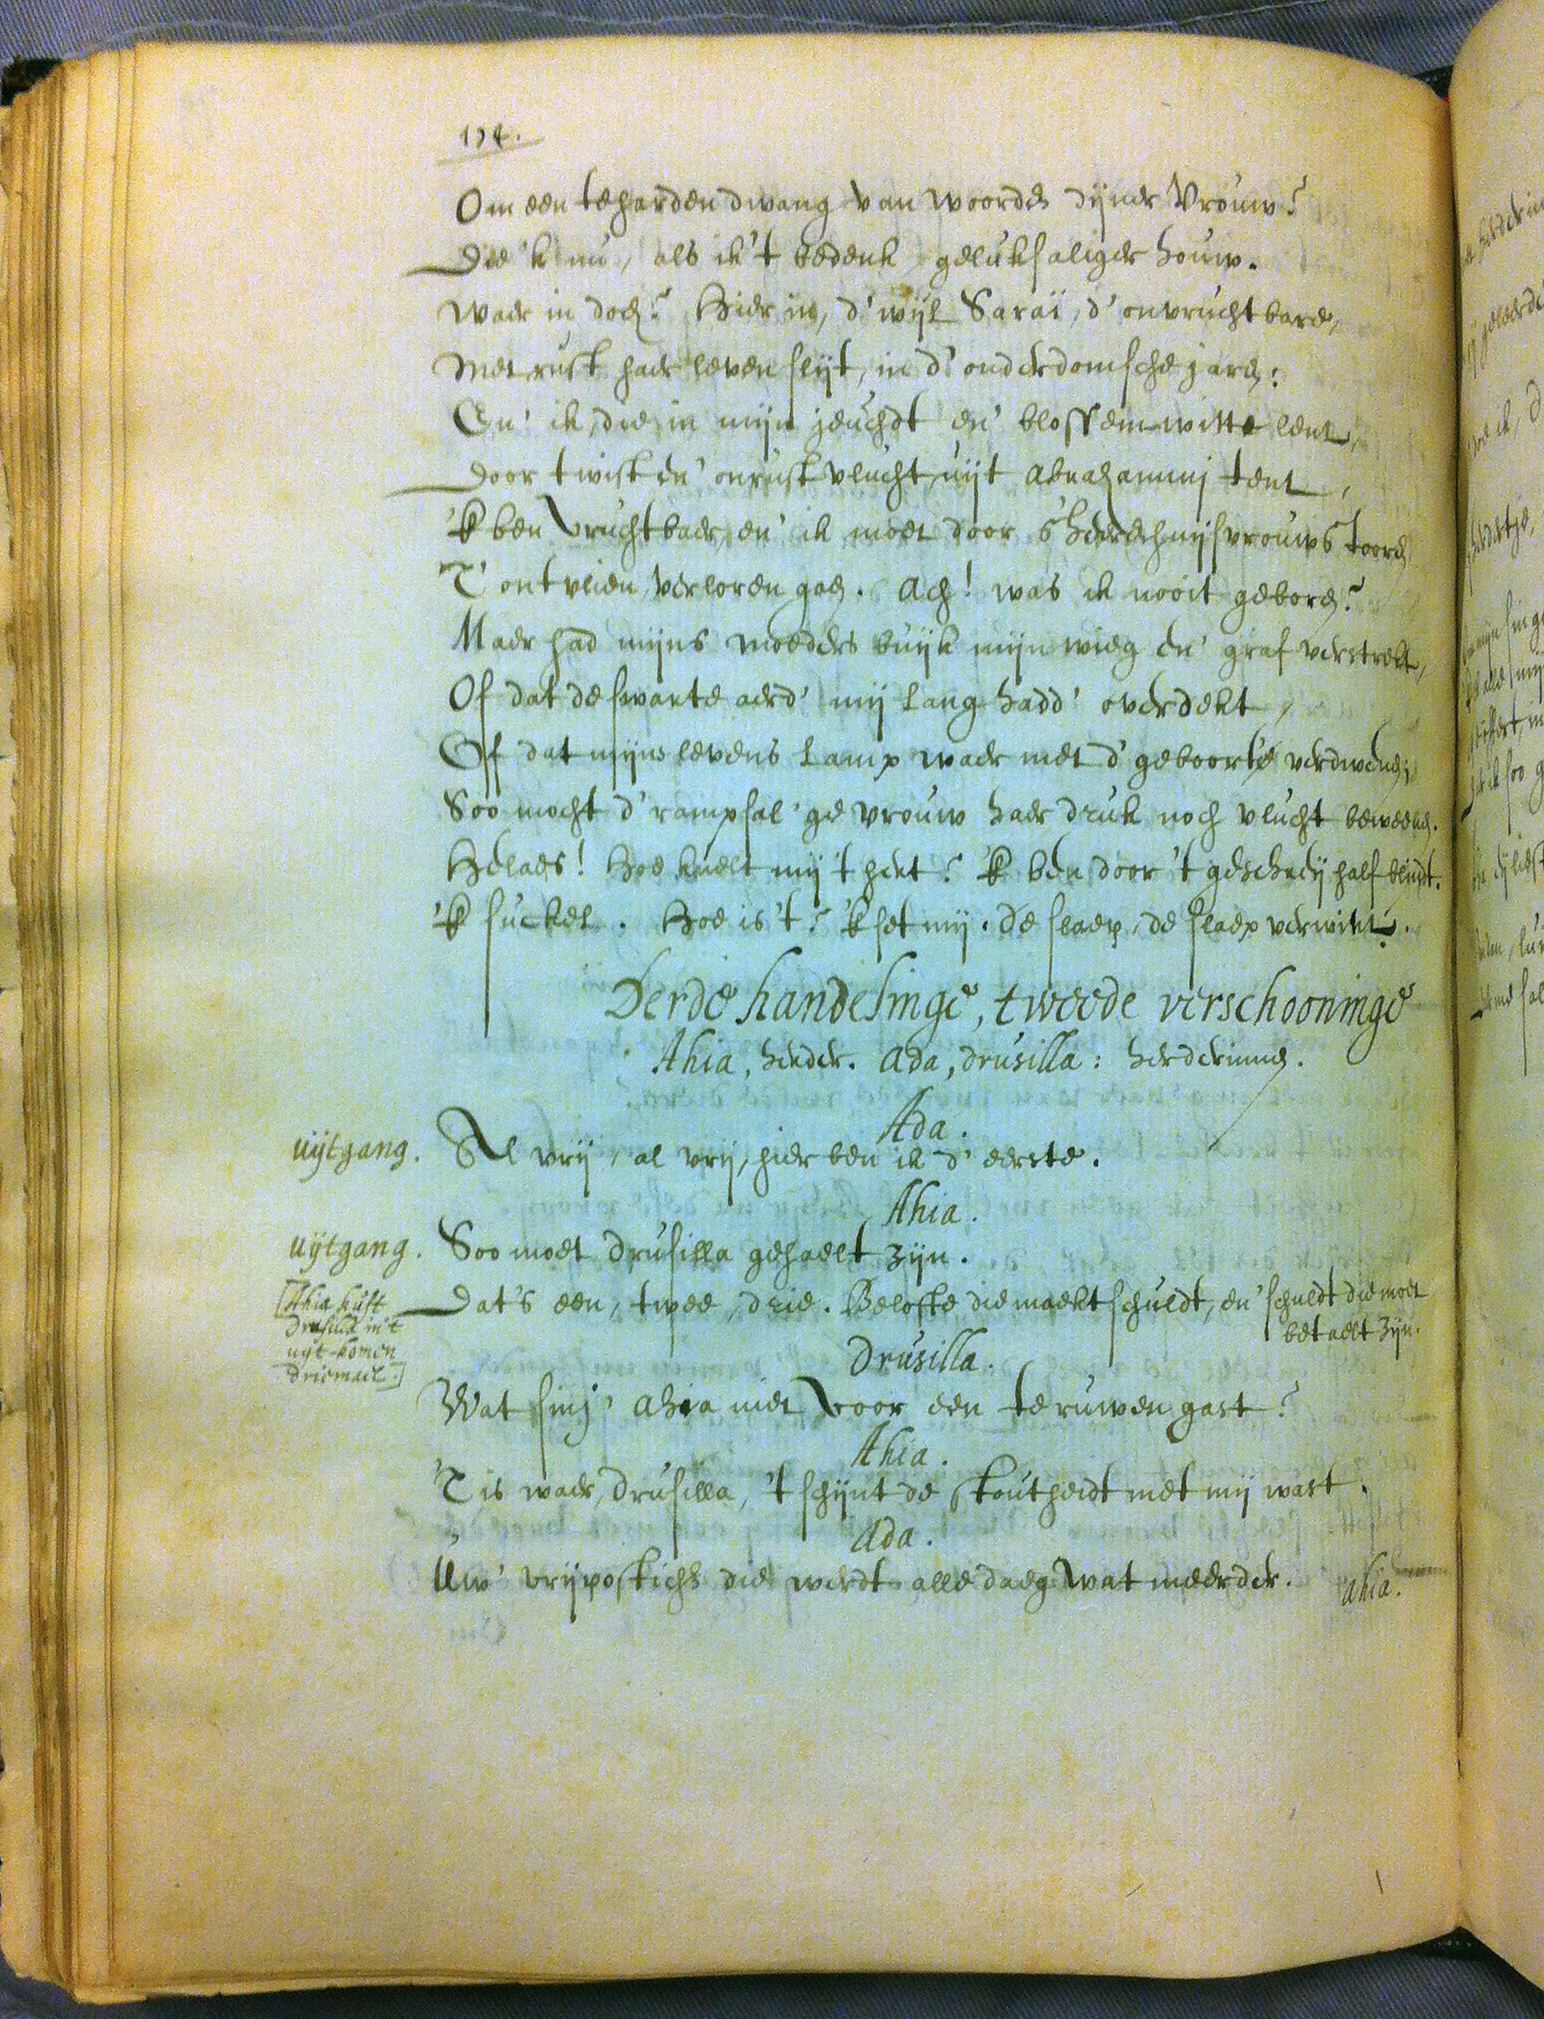 174.
Om een te harden dwang van woorden dijner Vrouw?
Die 'k nu, als ik 't bedenk geluksaliger houw.
Waer in doch? Hier in, d'wijl Saraï, d'onvruchtbare,
Met rust haer leven slijt, in d'onderdomsche jaren:
En' ik, die in mijn jeuchdt en' blossem-witte lent,
Door twist en' onrust vlucht uijt Abrahammij tent,
'k ben vruchtbaer, en' ik moet door s'heerschuijsvrouws toorn
T'ontvlien, verloren gaen. Ach! was ik nooit geboren?
Maer had mijns moeders buijk mijn wieg en' graf verstrekt,
Of dat de swarte aerd' mij lang hadd' overdekt,
Of dat mijns levens lamp waer met d'geboorte verdwenen;
Soo mocht d'rampsal'ge vrouw haer druk noch vlucht beweenen.
Helaes! Hoe knelt mij 't hert? 'k ben door 't geschreij half blindt.
'k suckel. Hoe is 't? 'k set mij. De slaep, de slaep verwint.
Derde handelinge, tweede verschooninge
Ahia, herder. Ada, Drusilla: herderinnen.
Ada.
uijtgang. Al vrij, al vrij, hier ben ik d'eerste.
Ahia.
uijtgang. Soo moet Drusilla gehaelt zijn.
[Ahia kust
Drusilla in't
uijt-komen
driemael.]
Dat's een, twee, drie. Belofte die maekt schuldt, en' schuldt die moet
betaelt zijn.
Drusilla.
Wat sinj' Ahia niet voor een te ruwen gast?
Ahia.
'T is waer, Drusilla, 't schijnt de stoutheidt met mij wast.
Ada.
Uw' vrijpostichh. die werdt alle daeg wat meerder.
Ahia.